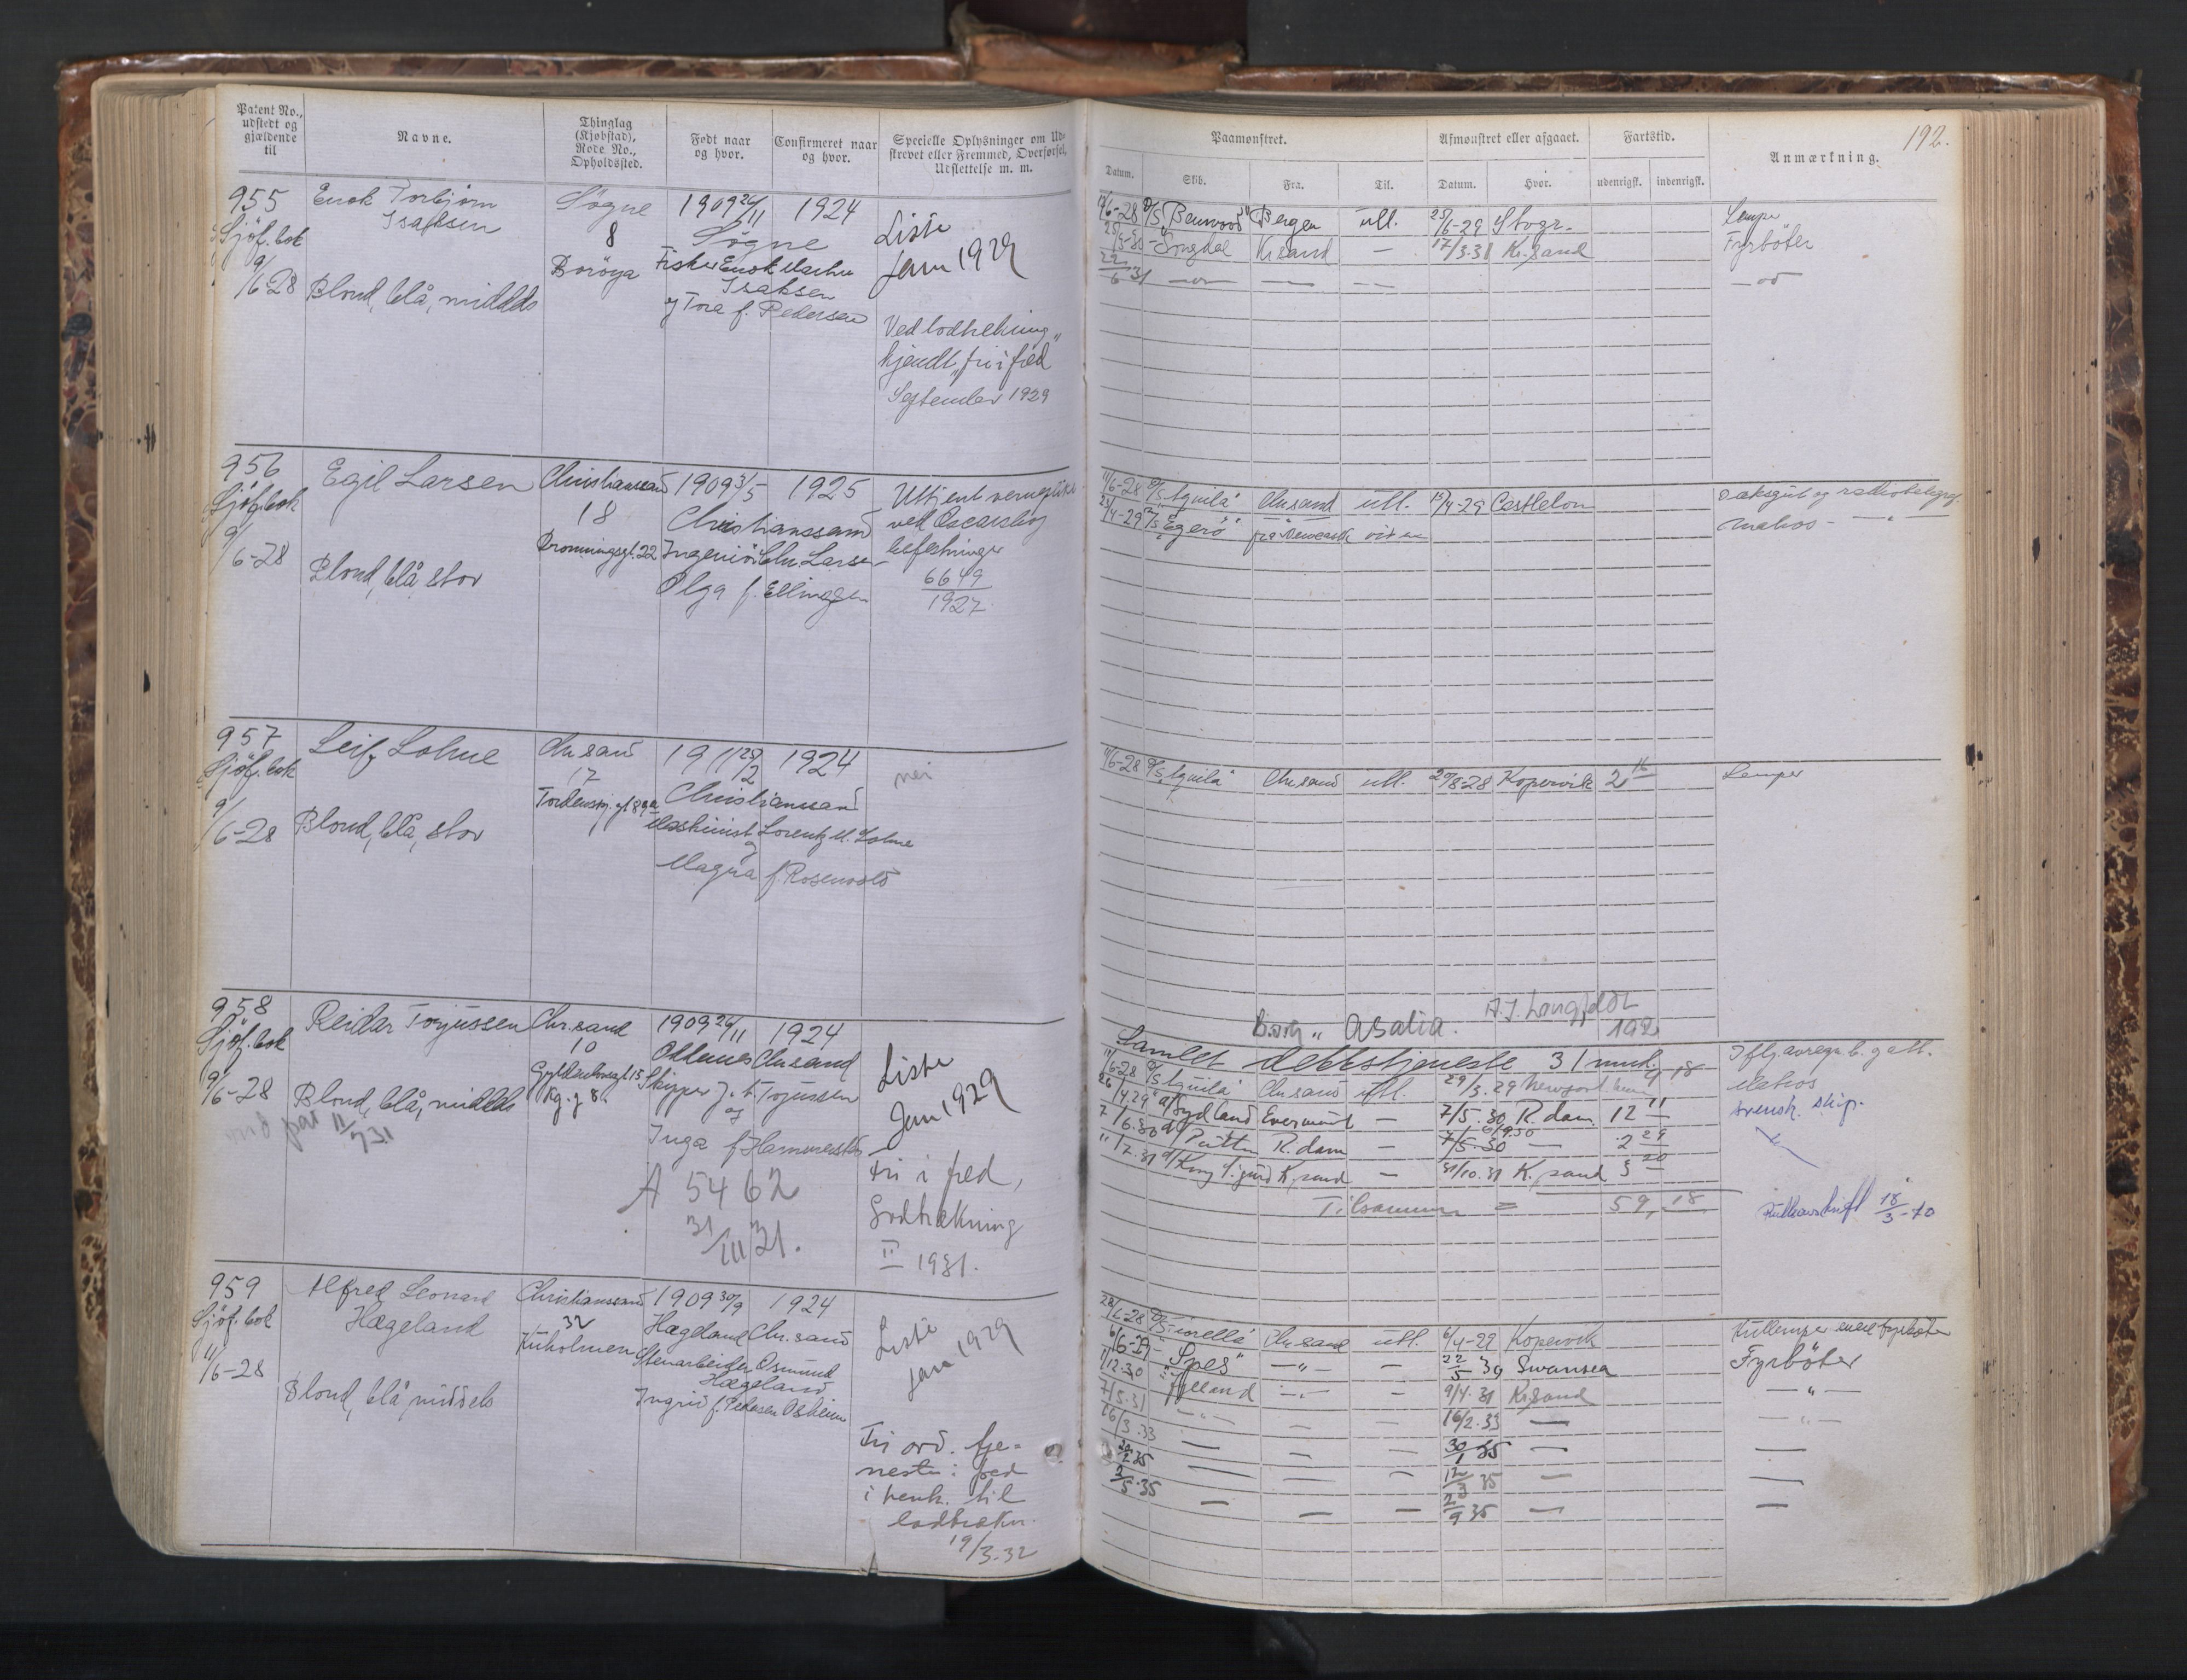 Patent No., udstedt og gjældende til
Navne.
Thinglag (Kjøbstad), Rode No., Opholdssted.
Født naar og hvor.
Confirmeret naar og hvor.
Specielle Oplysninger om Udstrevet eller Fremmed, Overførsel, Udslettelse m. m.
955
Sjöf. bok
9/6-28
Enok Torbjørn
Isaksen
Blond, blå, middels
Søgne
8
Boröya
1909 26/11
1924
Søgne
Fisker Enok Martin
Isaksen
og Tora f. Pedersen
Liste
Jan 1929
Ved lodtrekning
kjendt "fri i fred"
September 1929
956
Sjöf. bok
9/6-28
Egil Larsen
Blond, blå, stor
Christianssand
18
Dronningsgt. 22
1909 3/5
1925
Christianssand
Ingeniör Chr. Larsen
Olga f. Ellingsen
Uttjent verneplikt
ved Oscarsborg
befestninger
6649
1927
957
Sjöf. bok
9/6-28
Leif Lohne
Blond, blå, stor
Chr. sand
17
Tordenskj. gt 89a
1911 28/2
1924
Christianssand
Maskinist Lorentz M. Lohne
og
Magna f. Rosenvold
nei
958
Sjöf. bok
9/6-28
Reidar Torjussen
Blond, blå, middels
Chr. sand
10
Gyldenløvesgt 15
Kg. g 8
1909 26/11
1924
Oddernes Chr. sand
Skipper J. T. Torjussen
og
Inga f. Hammersto
A 5462
31/III 31.
Liste
Jan 1929
Fri i fred,
Lodtrekning
II 1931.
959
Sjöf. bok
11/6-28
Alfred Leonard
Hægeland
Blond, blå, middels
Christianssand
32
Kuholmen
1909 30/9
1924
Hægeland Chr. sand
Stenarbeider Osmund
Hægeland
Ingrid f. Pedersen Osheim
Liste
Jan 1929
Fri ord. tje-
neste i fred
i henh. til
lodtrekn.
19/3.32
192.
Paamønstret.
Afmønstret eller afgaaet.
Fartstid.
Anmærkning.
Datum.
Skib.
Fra.
Til.
Datum.
Hvor.
udenrigsk.
indenrigsk.
11/6-28 D/S "Benwood" Bergen utl. 25/6-29 Lemper
Songdal Kr. sand — 17/3.31 Kr. sand Fyrböter
22/6 31 — — —
11/6-28 D/S "Aquila" Chr. sand utl. 15/4-29 Castleton
21/4-29 D/S "Egerö" fra Newcastle Matros — " —
11/6-28 D/S "Aquila" Chr. sand utl. 20/8-28 Kopervik 2 16 Lemper
Bark "Asalia". A. J. Langfeldt
192
Samlet dekkstjeneste 31 mnd.
11/6-28 D/S "Aquila" Chr. sand utl. 29/3.29 Newport 9 18 Matros
26/4.29 Sydland — 7/5.30 R. dam 12 11 svensk. skip.
7/6.30 R. dam — 2 29
11/7.31 Kong Sigurd K. sand — 31/10.31 K. sand 3 20
Tilsammen = 59, 18
Rulleavskrift 18/3-40
28/6-28 D/S "Fiorella" Chr. sand utl. 6/4-29 Kopervik
6/6-29 — "Spes" — " — — 22/5 30 Swansea Fyrböter
1/12.30 " Jylland — " — — 9/4.31 Kr. sand — " —
7/5.31 — " — — — 16/2.33 — — " —
16/3.33 — — — 30/1 35 — —
20/2.35 — — — 12/3 35 — —
3/5.35 — — — 2/9 35 — —